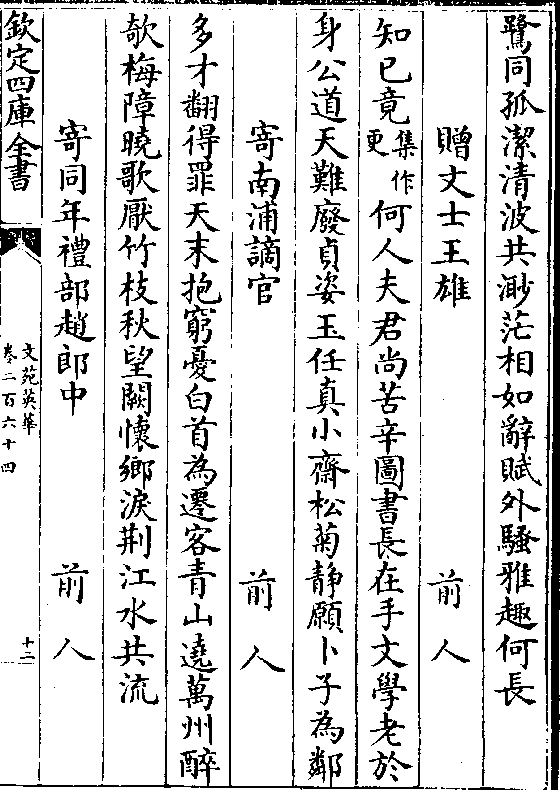 鷺同孤潔清波共渺茫相如辭賦外騷雅趣何長
贈文士王雄　前人
知已竟集作更何人夫君尚苦辛圖書長在手文學老於
身公道天難廢貞姿玉任真小齋松菊靜願卜子為鄰
寄南浦謫官　前人
多才翻得罪天末抱窮憂白首為遷客青山遶萬州醉
欹梅障曉歌厭竹枝秋望闕懷鄉淚荆江水共流
寄同年禮部趙郎中　前人
欽定四庫全書
文苑英華
卷二百六十四
十二